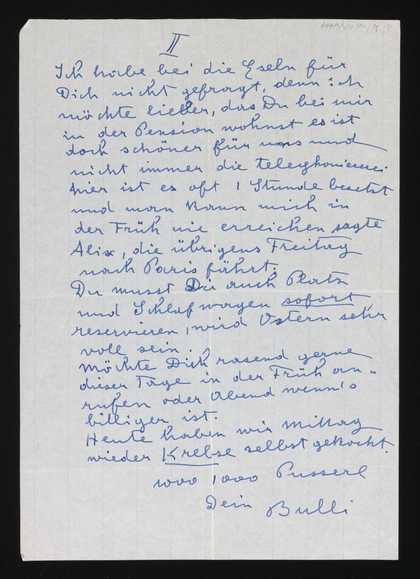 II
Ich habe bei die Eseln für
Dich nicht gefragt, denn ich
möchte lieber, das Du bei mir
in der Pension wohnst es ist
doch schöner für uns und
nicht immer die telephoniererei
hier ist es oft 1 Stunde besetzt
und man kann mich in
der Früh nie erreichen sagte
Alix, die übrigens Freitag
nach Paris fährt.
Du musst Du auch Platz
und Schlafwagen sofort
reservieren, wird Ostern sehr
voll sein.
Möchte Dich rasend gerne
dieser Tage in der Früh an-
rufen oder Abend wenn's
billiger ist.
Heute haben wir Mittag
wieder Krebse selbst gekocht.
1000 1000 Pusserl
Dein Bulli